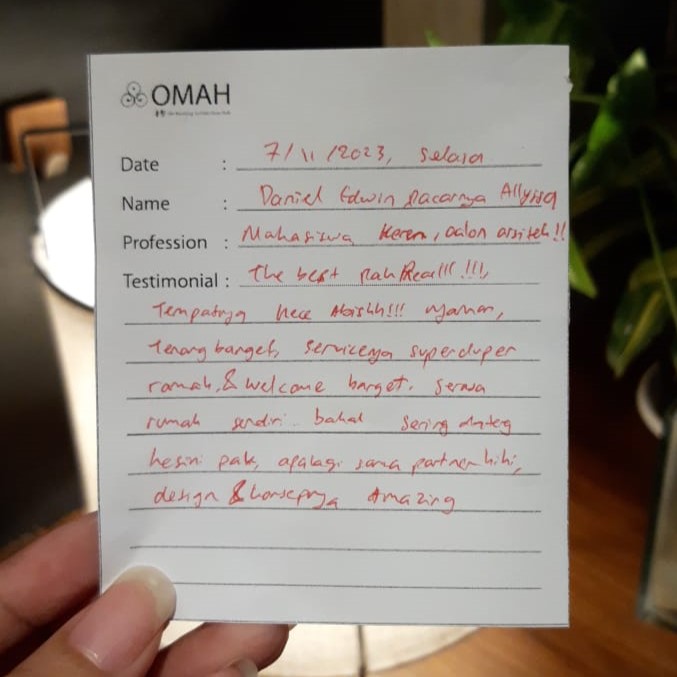 OMAH
Date : 7/11/2023, Selasa
Name : Daniel Edwin pacarnya Allyssa
Profession : Mahasiswa keren, calon arsitek!!
Testimonial : The best pak Real!!! !!!,
Tempatnya kece Abishh!!! nyaman,
tenang banget, servicenya superduper
ramah, & welcome banget. serasa
rumah sendiri. bakal sering dateng
kesini pak, apalagi sama partner hihi,
design & konsepnya Amazing